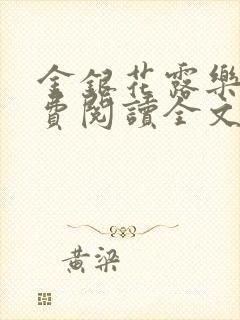 金銀花露樂
費閱讀全文
黃梁